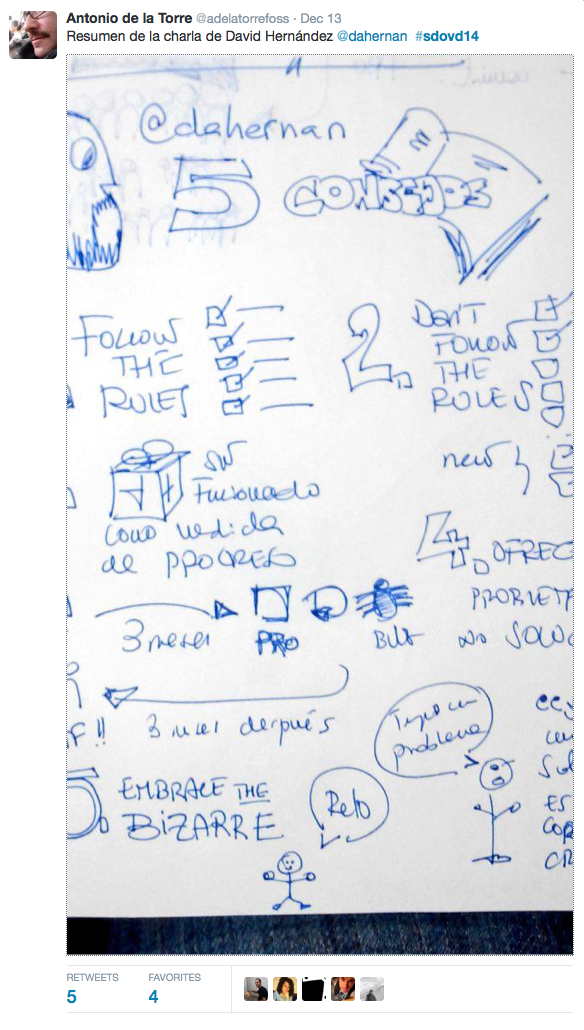 Antonio de la Torre @adelatorrefoss · Dec 13
Resumen de la charla de David Hernández @dahernan #sdovd14
@dahernan
5 CONSEJOS
FOLLOW
THE
RULES
2. DON'T
FOLLOW
THE
RULES
SW
Funcionado
como medida
de PROGRESO
new
4. OFREC
PROBLEM
NO SOLUC
3 meses
PRO
BUG
F!!
3 mes después
Tengo un
problema
5. EMBRACE THE
BIZARRE
Reto
ES
COP
RETWEETS
5
FAVORITES
4